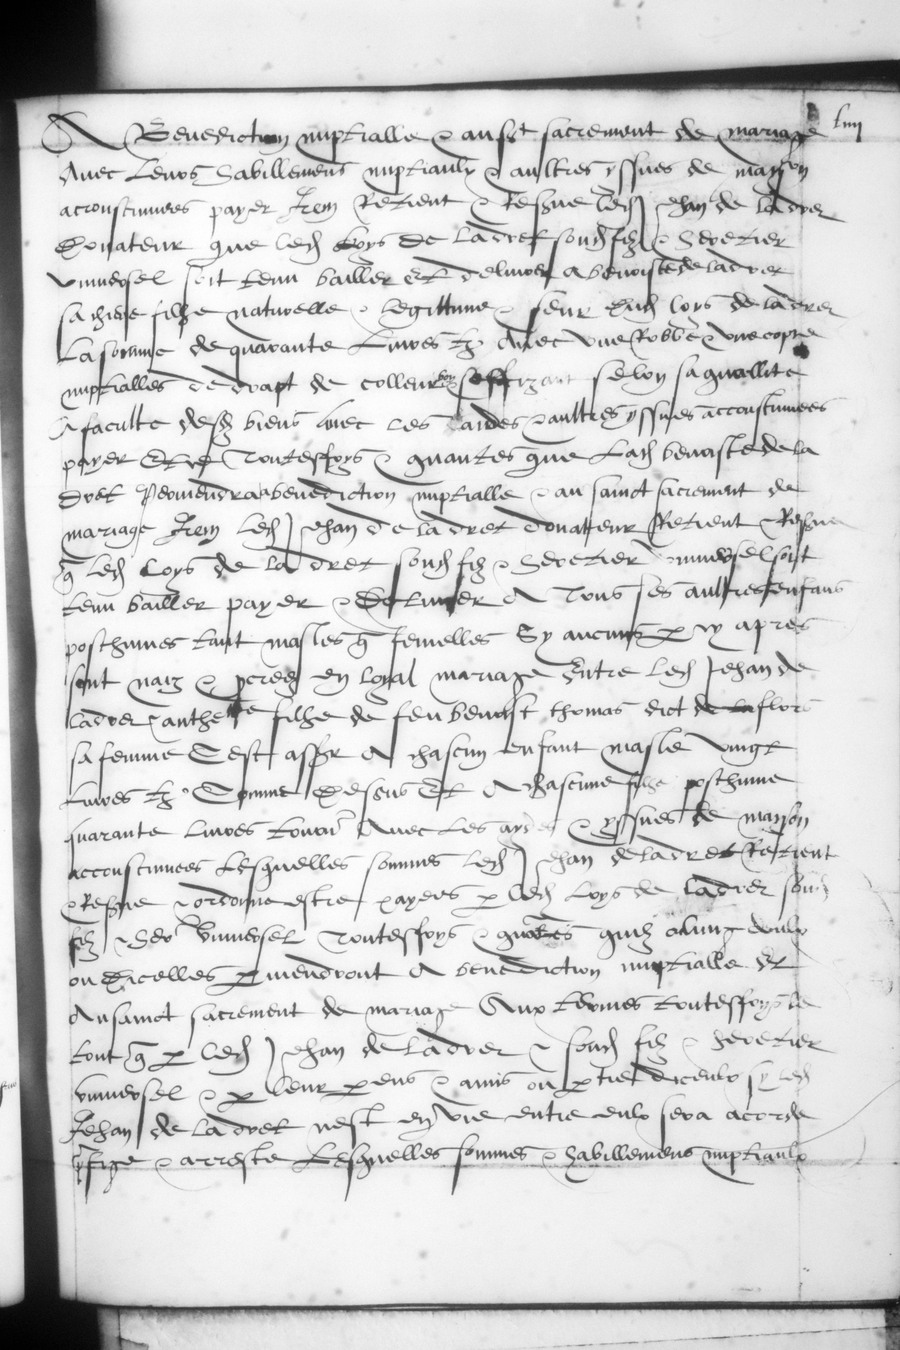 liiij
A Benediction nuptialle & au sainct sacrement de mariage
Avec leurs habillemens nuptiaulx & aultres yssues de mayson
acoustumees payer Item Retient & Reserve led Jehan de ladret
Donateur que led Loys de ladret sond filz & heretier
universel soit tenu bailler et deluivrer a benoiste de ladret
sa chiere filhe naturelle & legittime & seur dud loys de ladret
La somme de quarante Livres tz Avec une Robbe & une cotte
nuptialles de drapt de colleur bon & souffizant selon sa quallite
& faculte de ses biens avec les aides & aultres yssues accoustumees
payer Et ce Toutesfoys & quantes que Lad benoiste de la
dret Parviendra a benediction nuptialle & au sainct sacrement de
mariage Item led Jehan de la dret donateur Retient & Reserve
q led Loys de la dret sond filz & heretier universel soit
tenu bailler payer & Delivrer A Tous ses aultres enfans
posthumes tant masles q femelles Sy aucuns p cy apres
sont naiz & procreez en loyal mariage Entre led Jehan de
ladret & anthe filhe de feu benoist thomas dict de la flore
sa femme Cest assr A chascun enfant masle vingt
Livres tz Comme Dessus Et A chascune filhe posthume
quarante livres tournois Avec les aydes & yssues de mayson
accoustumees Lesquelles sommes led Jehan de ladret Retient
& Reserve & ordonne estre payees p led Loys de ladret sond
filz & here universel Toutesfoys & quantes quilz o aulcung deulx
ou Dicelles pviendront A benediction nuptialle Et
Au sainct sacrement de mariage Aux termes toutesfoys le
tout q p led Jehan de ladret & sond filz & heretier
universel & p leur parens & amis ou partie diceulx sy led
Jehan de la dret nest en vie entre eulx sera acorde
pfige & arreste Lesquelles sommes & habillemens nuptiaulx